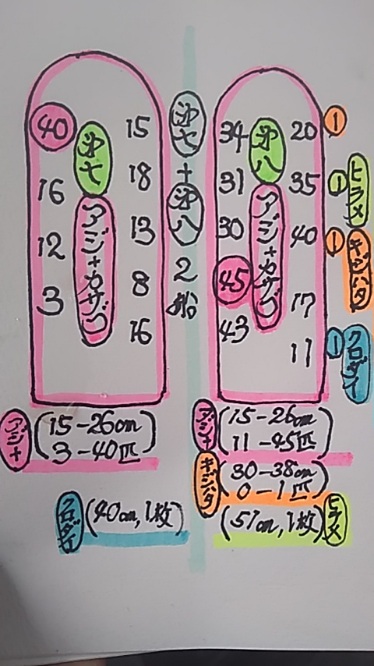 40
16
12
3
第七
アジ+カサゴ
15
18
13
8
16
第七+第八2船
34
31
30
45
43
第八
アジ+カサゴ
20
35
40
17
11
1
1 ヒラメ
1 キジハタ
1 クロダイ
アジ+ (15-26cm
3-40匹)
クロダイ (40cm,1枚)
アジ+ (15-26cm
11-45匹)
キジハタ (30-38cm
0-1匹)
(51cm,1枚) ヒラメ